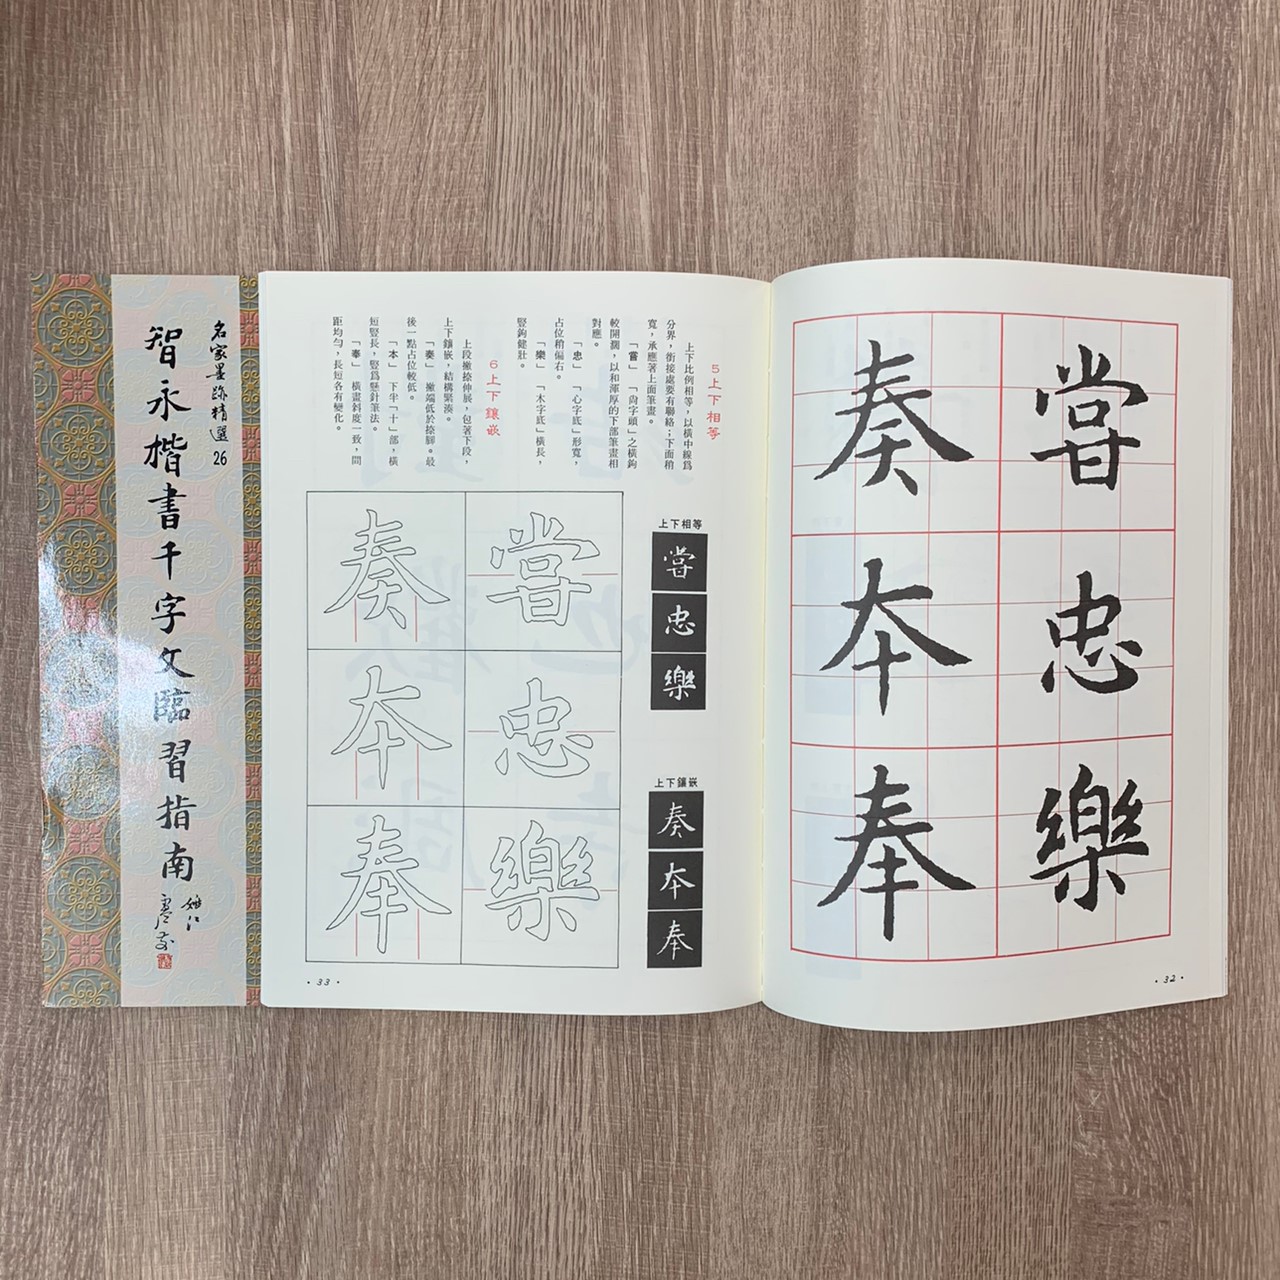 名家墨跡精選26
智永楷書千字文臨習指南
嘗忠樂
奏本奉
• 32 •
5上下相等
上下比例相等，以橫中線爲
分界，銜接處要有聯絡；下面稍
寬，承應著上面筆畫。
「嘗」　「尚字頭」之橫鉤
較開闊，以和渾厚的下部筆畫相
對應。
「忠」　「心字底」形寬，
占位稍偏右。
「樂」　「木字底」橫長，
豎鉤健壯。
6上下鑲嵌
上段撇捺伸展，包著下段，
上下鑲嵌，結構緊湊。
「奏」　撇端低於捺腳。最
後一點占位較低。
「本」　下半「十」部，橫
短豎長，豎爲懸針筆法。
「奉」　橫畫斜度一致，間
距均勻，長短各有變化。
上下相等
嘗
忠
樂
上下鑲嵌
奏
本
奉
嘗忠樂
奏本奉
• 33 •